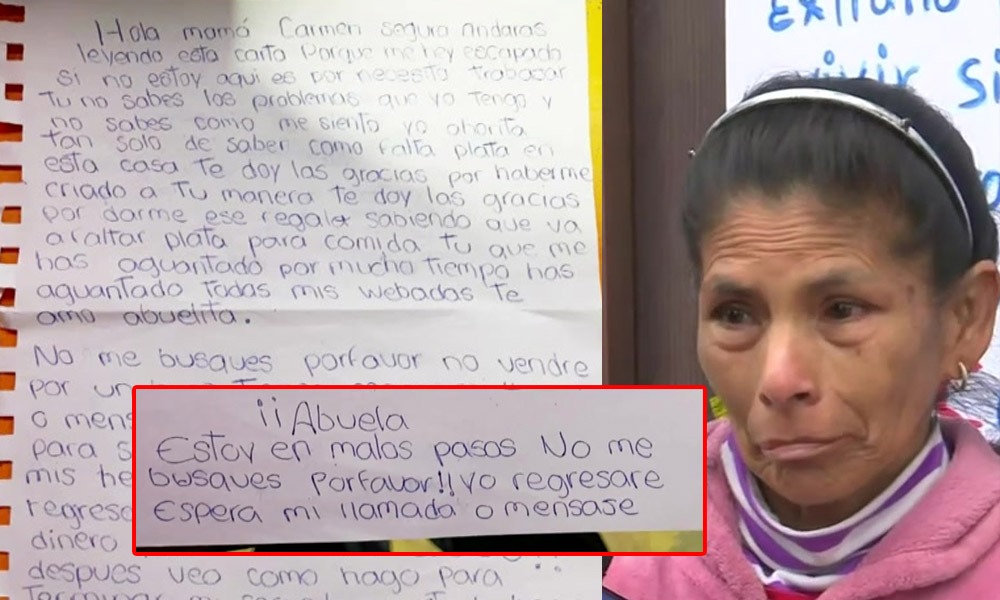 Hola mamá Carmen segura andaras
leyendo esta carta Porque me hey escapado
si no estoy aqui es por necesito trabacar
Tu no sabes los problemas que yo Tengo y
no sabes como me siento yo ahorita
tan solo de saber como falta plata en
esta casa te doy las gracias por haberme
criado a Tu manera te doy las gracias
por darme ese regalo sabiendo que va
a faltar plata para comida tu que me
has aguantado por mucho tiempo has
aguantado Todas mis webadas Te
amo abuelita.
No me busques porfavor no vendre
por un
o mens
para s
mis he
regreso
dinero
despues veo como hago para
¡¡Abuela
Estoy en malos pasos No me
busques porfavor!! yo regresare
Espera mi llamada o mensase
Extraño
vivir si